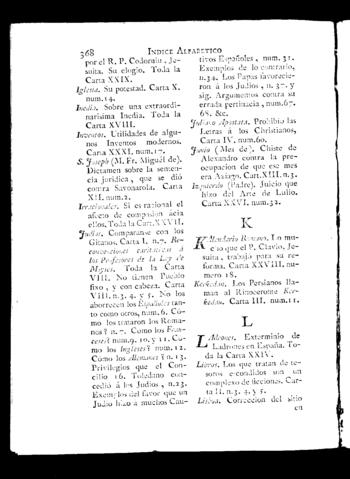 368 INDICE ALFABETICO
por el R. P. Codorniu, Je-
suita. Su elogio. Toda la
Carta XXIX.
Iglesia. Su potestad. Carta X.
num. 14.
Inedia. Sobre una extraordi-
narisima Inedia. Toda la
Carta XVIII.
Inventos. Utilidades de algu-
nos Inventos modernos.
Carta XXXI. num. 17.
S. Joseph (M. Fr. Miguél de).
Dictamen sobre la senten-
cia juridica, que se dió
contra Savonarola. Carta
XII. num. 2.
Irracionales. Si es racional el
afecto de compasion ácia
ellos. Toda la Cart. XXVII.
Judios. Comparanse con los
Gitanos. Carta I. n. 7. Re-
convenciones
los Profesores de la Ley de
Moyses. Toda la Carta
VIII. No tienen Pueblo
fixo, y con cabeza. Carta
VIII. n. 3. 4. y 5. No los
aborrecen los Españoles tan-
to como otros, num. 6. Có-
mo los trataron los Roma-
nos? n. 7. Como los Fran-
ceses? num. 9. 10. y 11. Có-
mo los Ingleses? num. 12.
Cómo los Alemanes? n. 13.
Privilegios que el Con-
cilio 16. Toledano con-
cedió á los Judios, n. 23.
Exemplos del favor que un
Judio hizo á muchos Cau-
tivos Españoles, num. 31.
Exemplos de lo contrario,
n. 34. Los Papas favorecie-
ron á los Judios, n. 37. y
sig. Argumentos contra su
errada pertinacia, num. 67.
68. &c.
Juliano Apostata. Prohibió las
Letras á los Christianos,
Carta IV. num. 60.
Junio (Mes de). Chiste de
Alexandro contra la pre-
ocupacion de que ese mes
era Aziago. Cart. XIII. n. 3.
Izquierdo (Padre). Juicio que
hizo del Arte de Lulio.
Carta XXVI. num. 32.
K
Kalendario Romano. Lo mu-
cho que el P. Clavio, Je-
suita, trabajó para su re-
forma. Carta XXVIII. nu-
mero 18.
Kerkedan. Los Persianos lla-
man al Rinoceronte Ker-
kedan. Carta III. num. 11.
L
Ladrones. Exterminio de
Ladrones en España. To-
da la Carta XXIV.
Libros. Los que tratan de te-
soros escondidos son un
complexo de ficciones. Car-
ta II. n. 3. 4. y 5.
Lisboa. Correccion del sitio
en